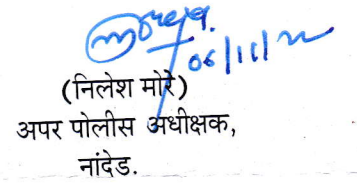 06/11/22
(निलेश मोरे)
अपर पोलीस अधीक्षक,
नांदेड.